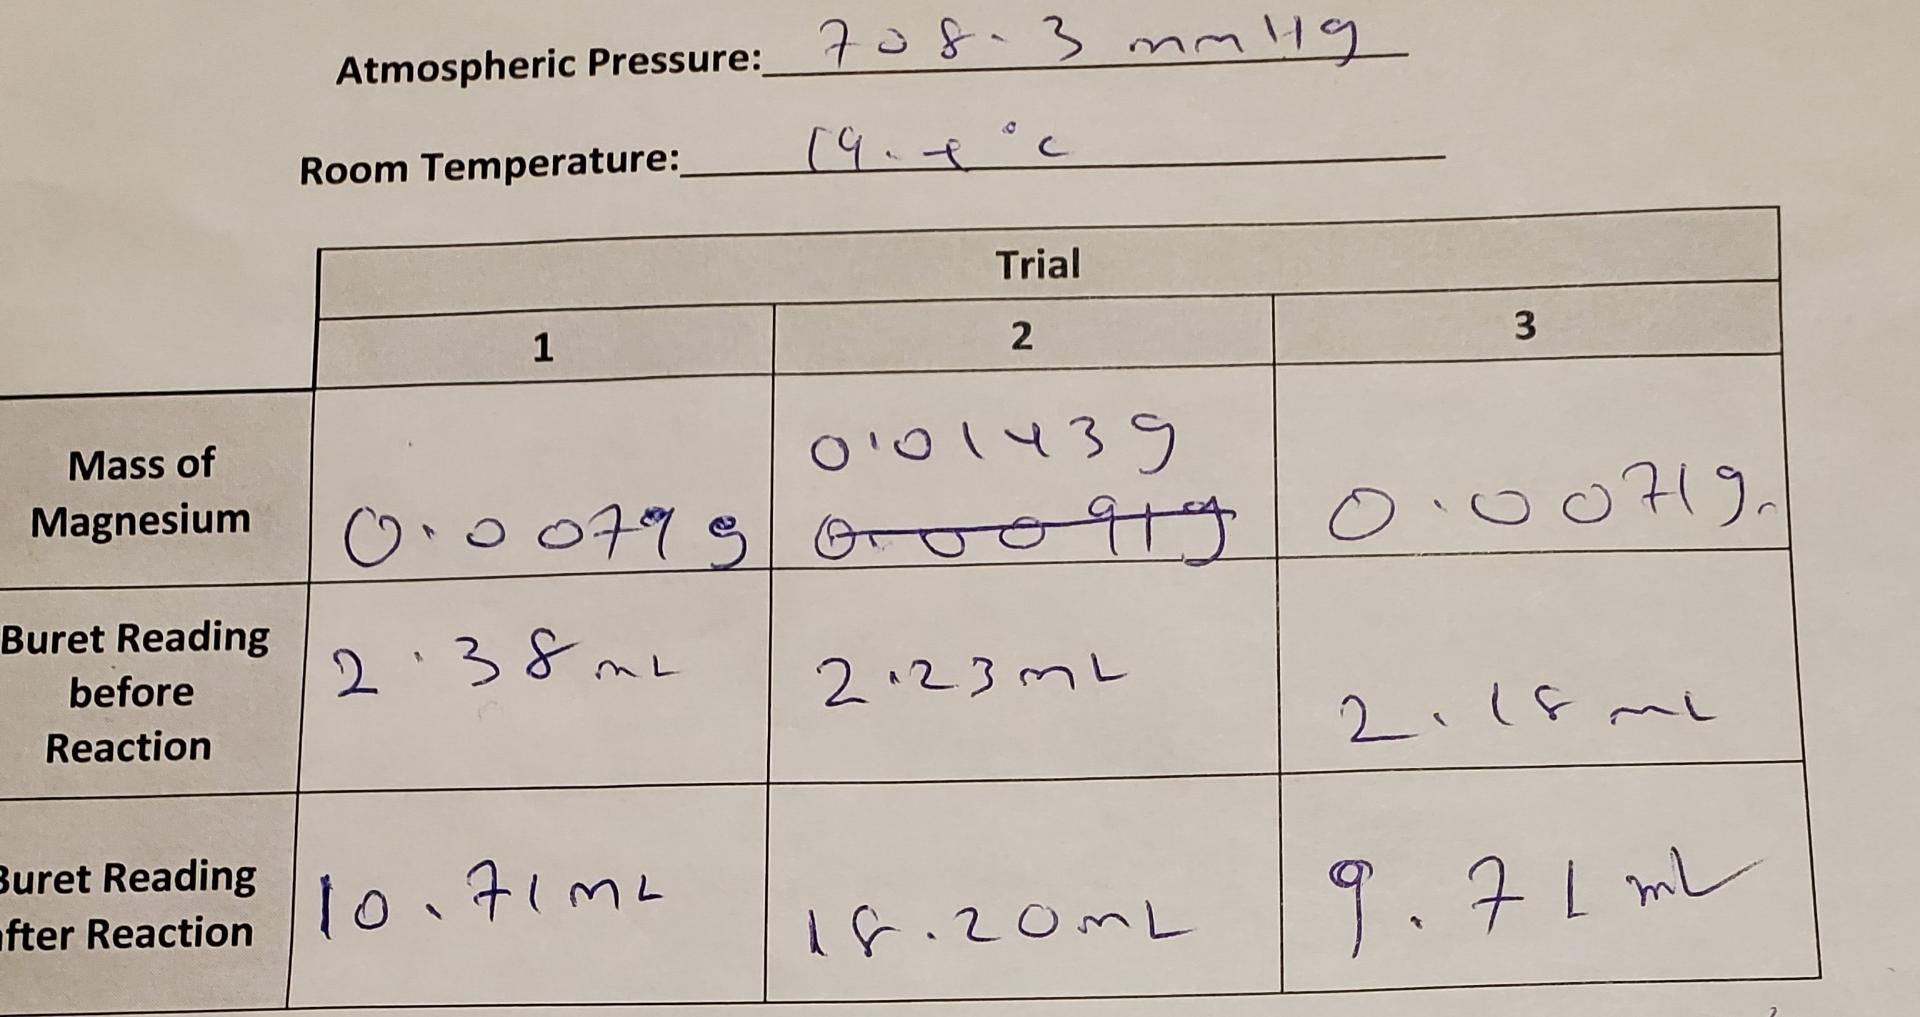 Atmospheric Pressure: 708.3 mmHg
Room Temperature: °c
Trial
1 2 3
Mass of Magnesium
0.0079 g
0.0143g
0.0091g
0.0071g.
Buret Reading before Reaction
2.38 mL
2.23 mL
2.18 mL
Buret Reading after Reaction
10.71 mL
18.20 mL
9.71 mL